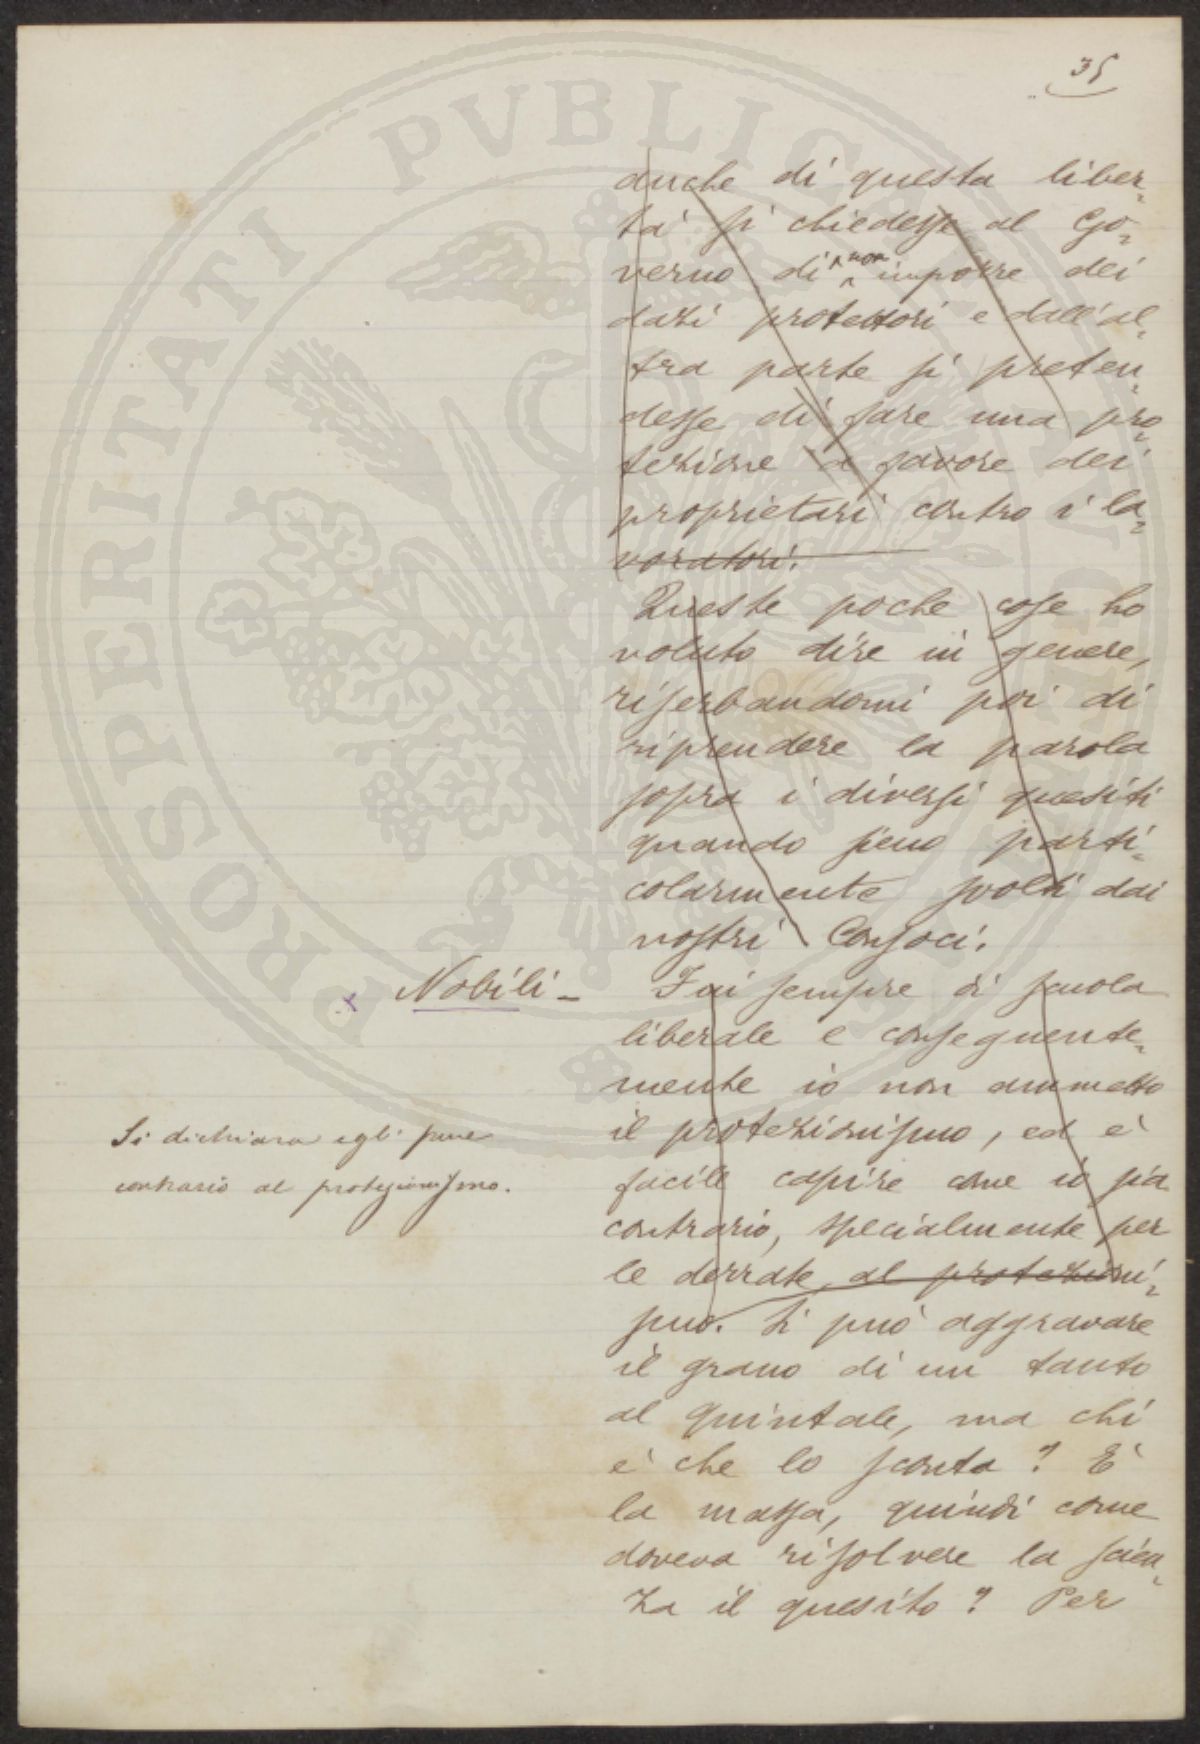 35
anche di questa liber-
tà si chiedesse al Go-
verno di non imporre dei
dazi protettori e dall'al-
tra parte si preten-
desse di fare una pro-
tezione a favore dei
proprietari contro i la-
voratori.
Queste poche cose ho
voluto dire in genere,
riserbandomi poi di
riprendere la parola
sopra i diversi quesiti
quando sieno parti-
colarmente svolti dai
nostri Consoci.
x Nobili - Fui sempre di scuola
liberale e conseguente-
mente io non ammetto
il protezionismo, ed è
facile capire come io sia
contrario, specialmente per
le derrate, al protezioni-
smo. Si può aggravare
il grano di un tanto
al quintale, ma chi
è che lo sconta? È
la massa, quindi come
doveva risolvere la scien-
za il quesito? Per
Si dichiara egli pure
contrario al protezionismo.
PROSPERITATI PVBLICAE AVGENDAE